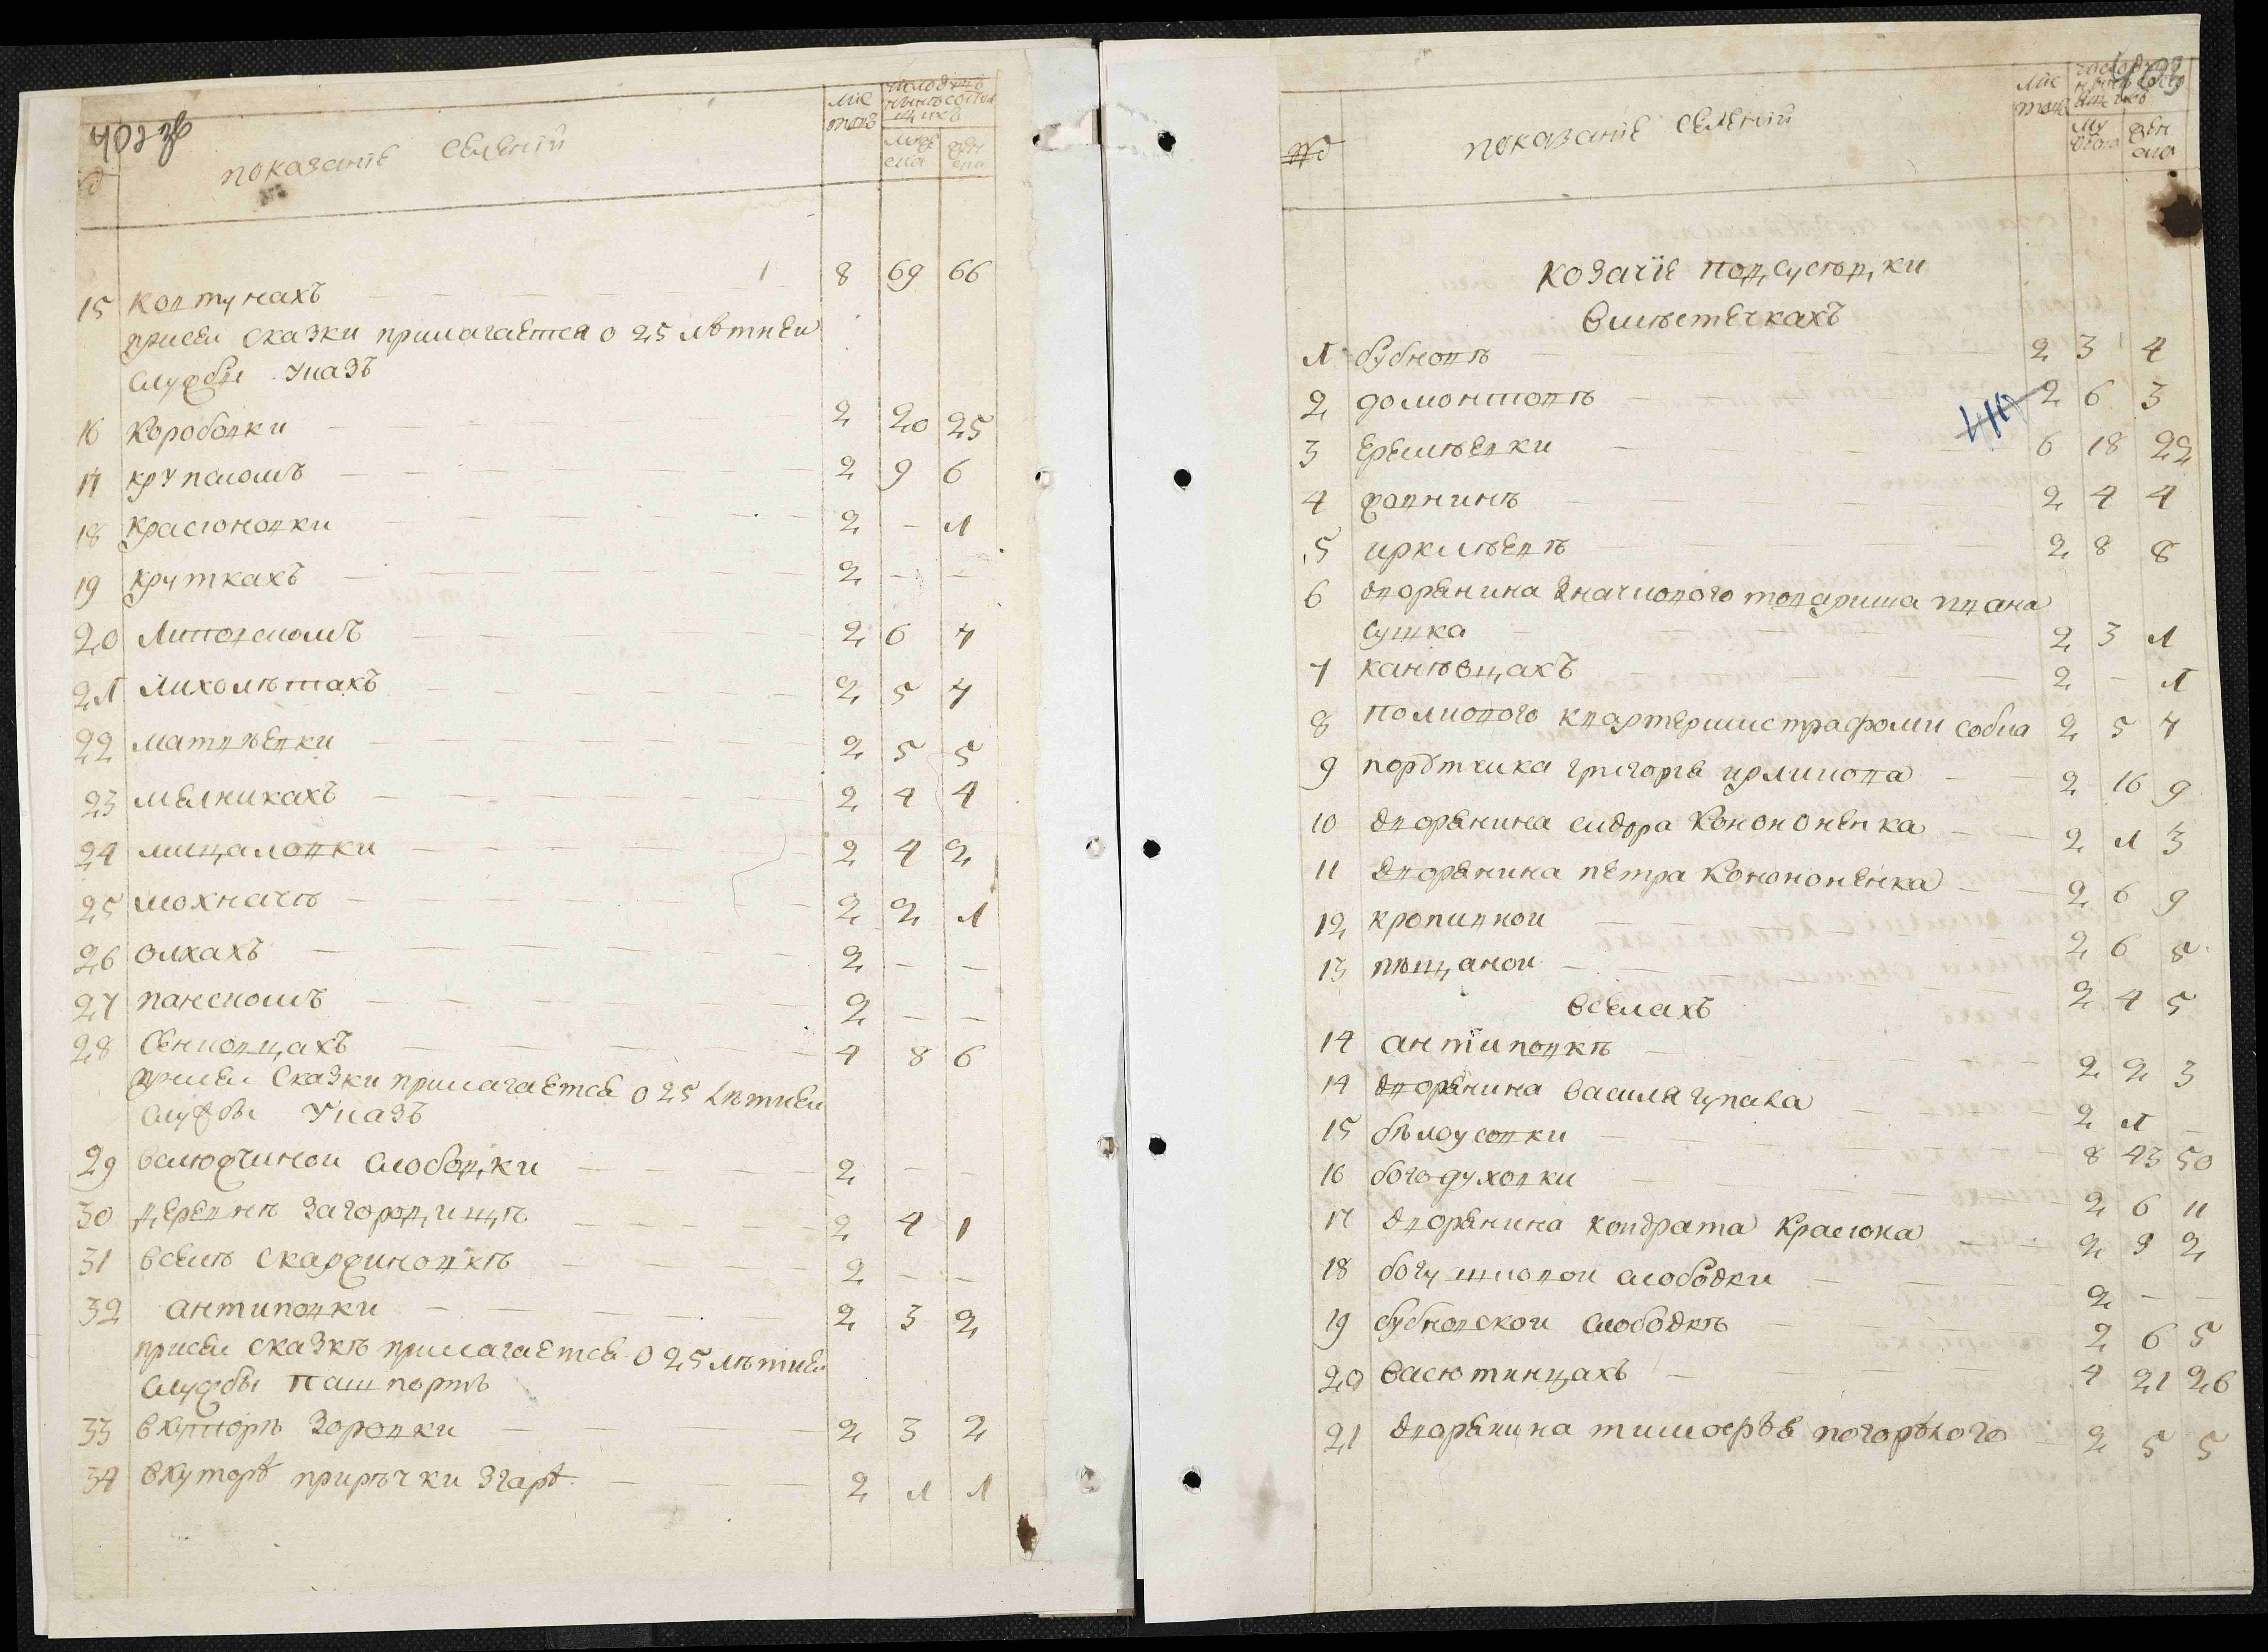 №
показаніе селеній
лис товъ
число душъ нынѣ состоящихъ
муж еска
жен ска
15 Ковтунахъ 8 69 66
присеи сказки прилагается о 25 лѣтнеи
службе указъ
16 Коробовки 2 20 25
17 крупскомъ 2 9 6
18 Красюновки 2 - 1
19 круткахъ 2 - -
20 Липовскомъ 2 6 7
21 Лихолѣтахъ 2 5 7
22 матвѣевки 2 5 5
23 мелникахъ 2 4 4
24 мицаловки 2 4 2
25 мохначѣ 2 2 1
26 олхахъ 2 - -
27 панскомъ 2 - -
28 Сенковцахъ 4 8 6
присеи Сказки прилагается о 25 лѣтнеи
службы Указъ
29 Слободки 2 - -
30 деревнѣ Загородищѣ 2 4 1
31 вселѣ скаржиновкѣ 2 - -
32 антиповки 2 3 2
присеи сказкѣ прилагается о 25 лѣтнеи
службы пашпортъ
33 вхуторѣ Заровки 2 3 2
34 вхуторѣ прирѣчки Згарѣ 2 1 1
№
показаніе селеній
лис товъ
число душъ нынѣ состоящихъ
му ска
жен ска
козачіе подсусѣдки
вмѣстечкахъ
1 бубновѣ 2 3 4
2 домонтовѣ 2 6 3
3 еремѣевки 6 18 22
4 жовнинѣ 2 4 4
5 иркл‌ѣевѣ 2 8 8
6 дворянина значкового товариша ивана
сушка 2 3 1
7 канѣвцахъ 2 - 1
8 полкового квартермистра фоми собка 2 5 7
9 порутчика григоря 2 16 9
10 дворянина сидора Кононовича 2 1 3
11 дворянина петра Конононенка 2 6 9
12 кропивнои 2 6 8
13 пѣщанои 2 4 5
вселахъ
14 антиповкѣ 2 2 3
14 дворянина василя гупала 2 1 -
15 бѣлоусовки 8 43 50
16 богодуховки 2 6 11
17 дворянина кондрата Красюка 2 9 2
18 богушковои слободки 2 - -
19 бубновскои слободкѣ 2 6 5
20 васютинцахъ 4 21 26
21 дворянина тимофѣя погорѣлого 2 5 5